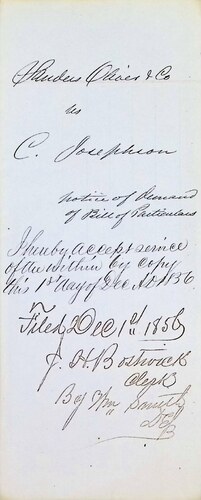 Sanders Oliver & Co
vs
C. Josephson
notice of Demand
of Bill of Particulars
I hereby accept service
of the within by copy
this 1st day of Dec AD 1856
Filed Dec 1st 1856
J. H. Bostwick
Clerk
By Wm Smith